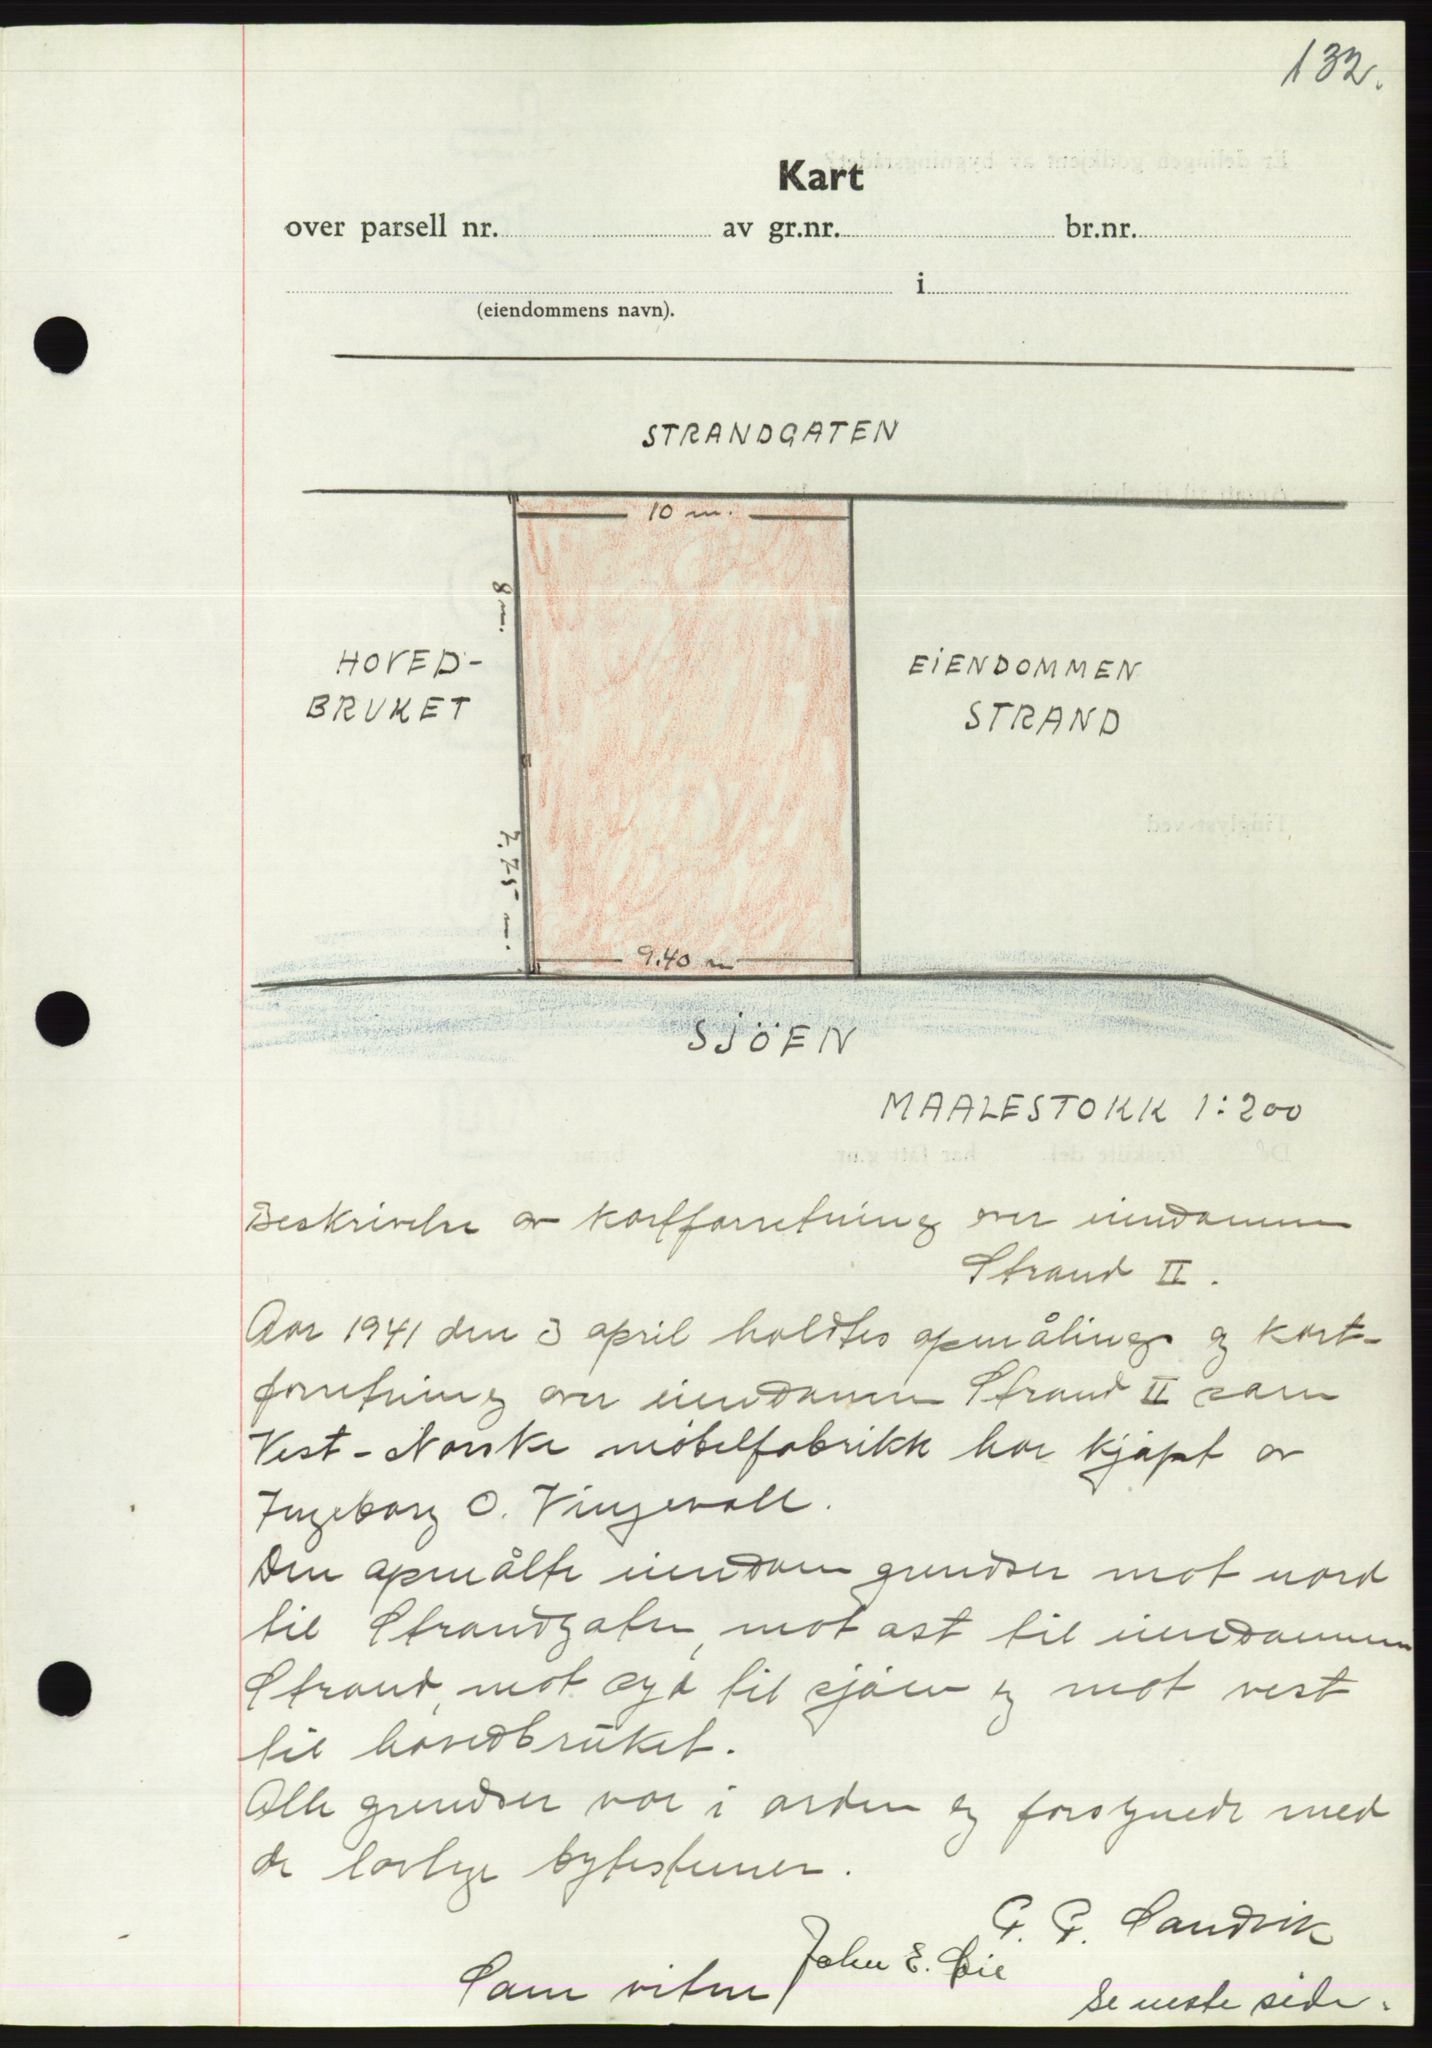 132.
Kart
over parsell nr. av gr.nr. br.nr.
i
(eiendommens navn).
STRANDGATEN
10 m.
8 m.
HOVED-
BRUKET
EIENDOMMEN
STRAND
7.75 m.
9.40 m
SJÖEN
MAALESTOKK 1:200
Beskrivelse av kartforretning over eiendommen
Strand II.
Aar 1941 den 3 april holdtes opmåling og kart-
forretning over eiendommen Strand II som
Vest-Norske møbelfabrikk har kjøpt av
Ingeborg O. Vingevoll.
Den opmålte eiendom grendser mot nord
til Strandgaten, mot øst til eiendommen
Strand, mot syd til sjøen og mot vest
til hovedbruket.
Alle grendser var i orden og forsynede med
de lovlige bytestener.
Sandvik
Som vitne John E.
Se neste side.